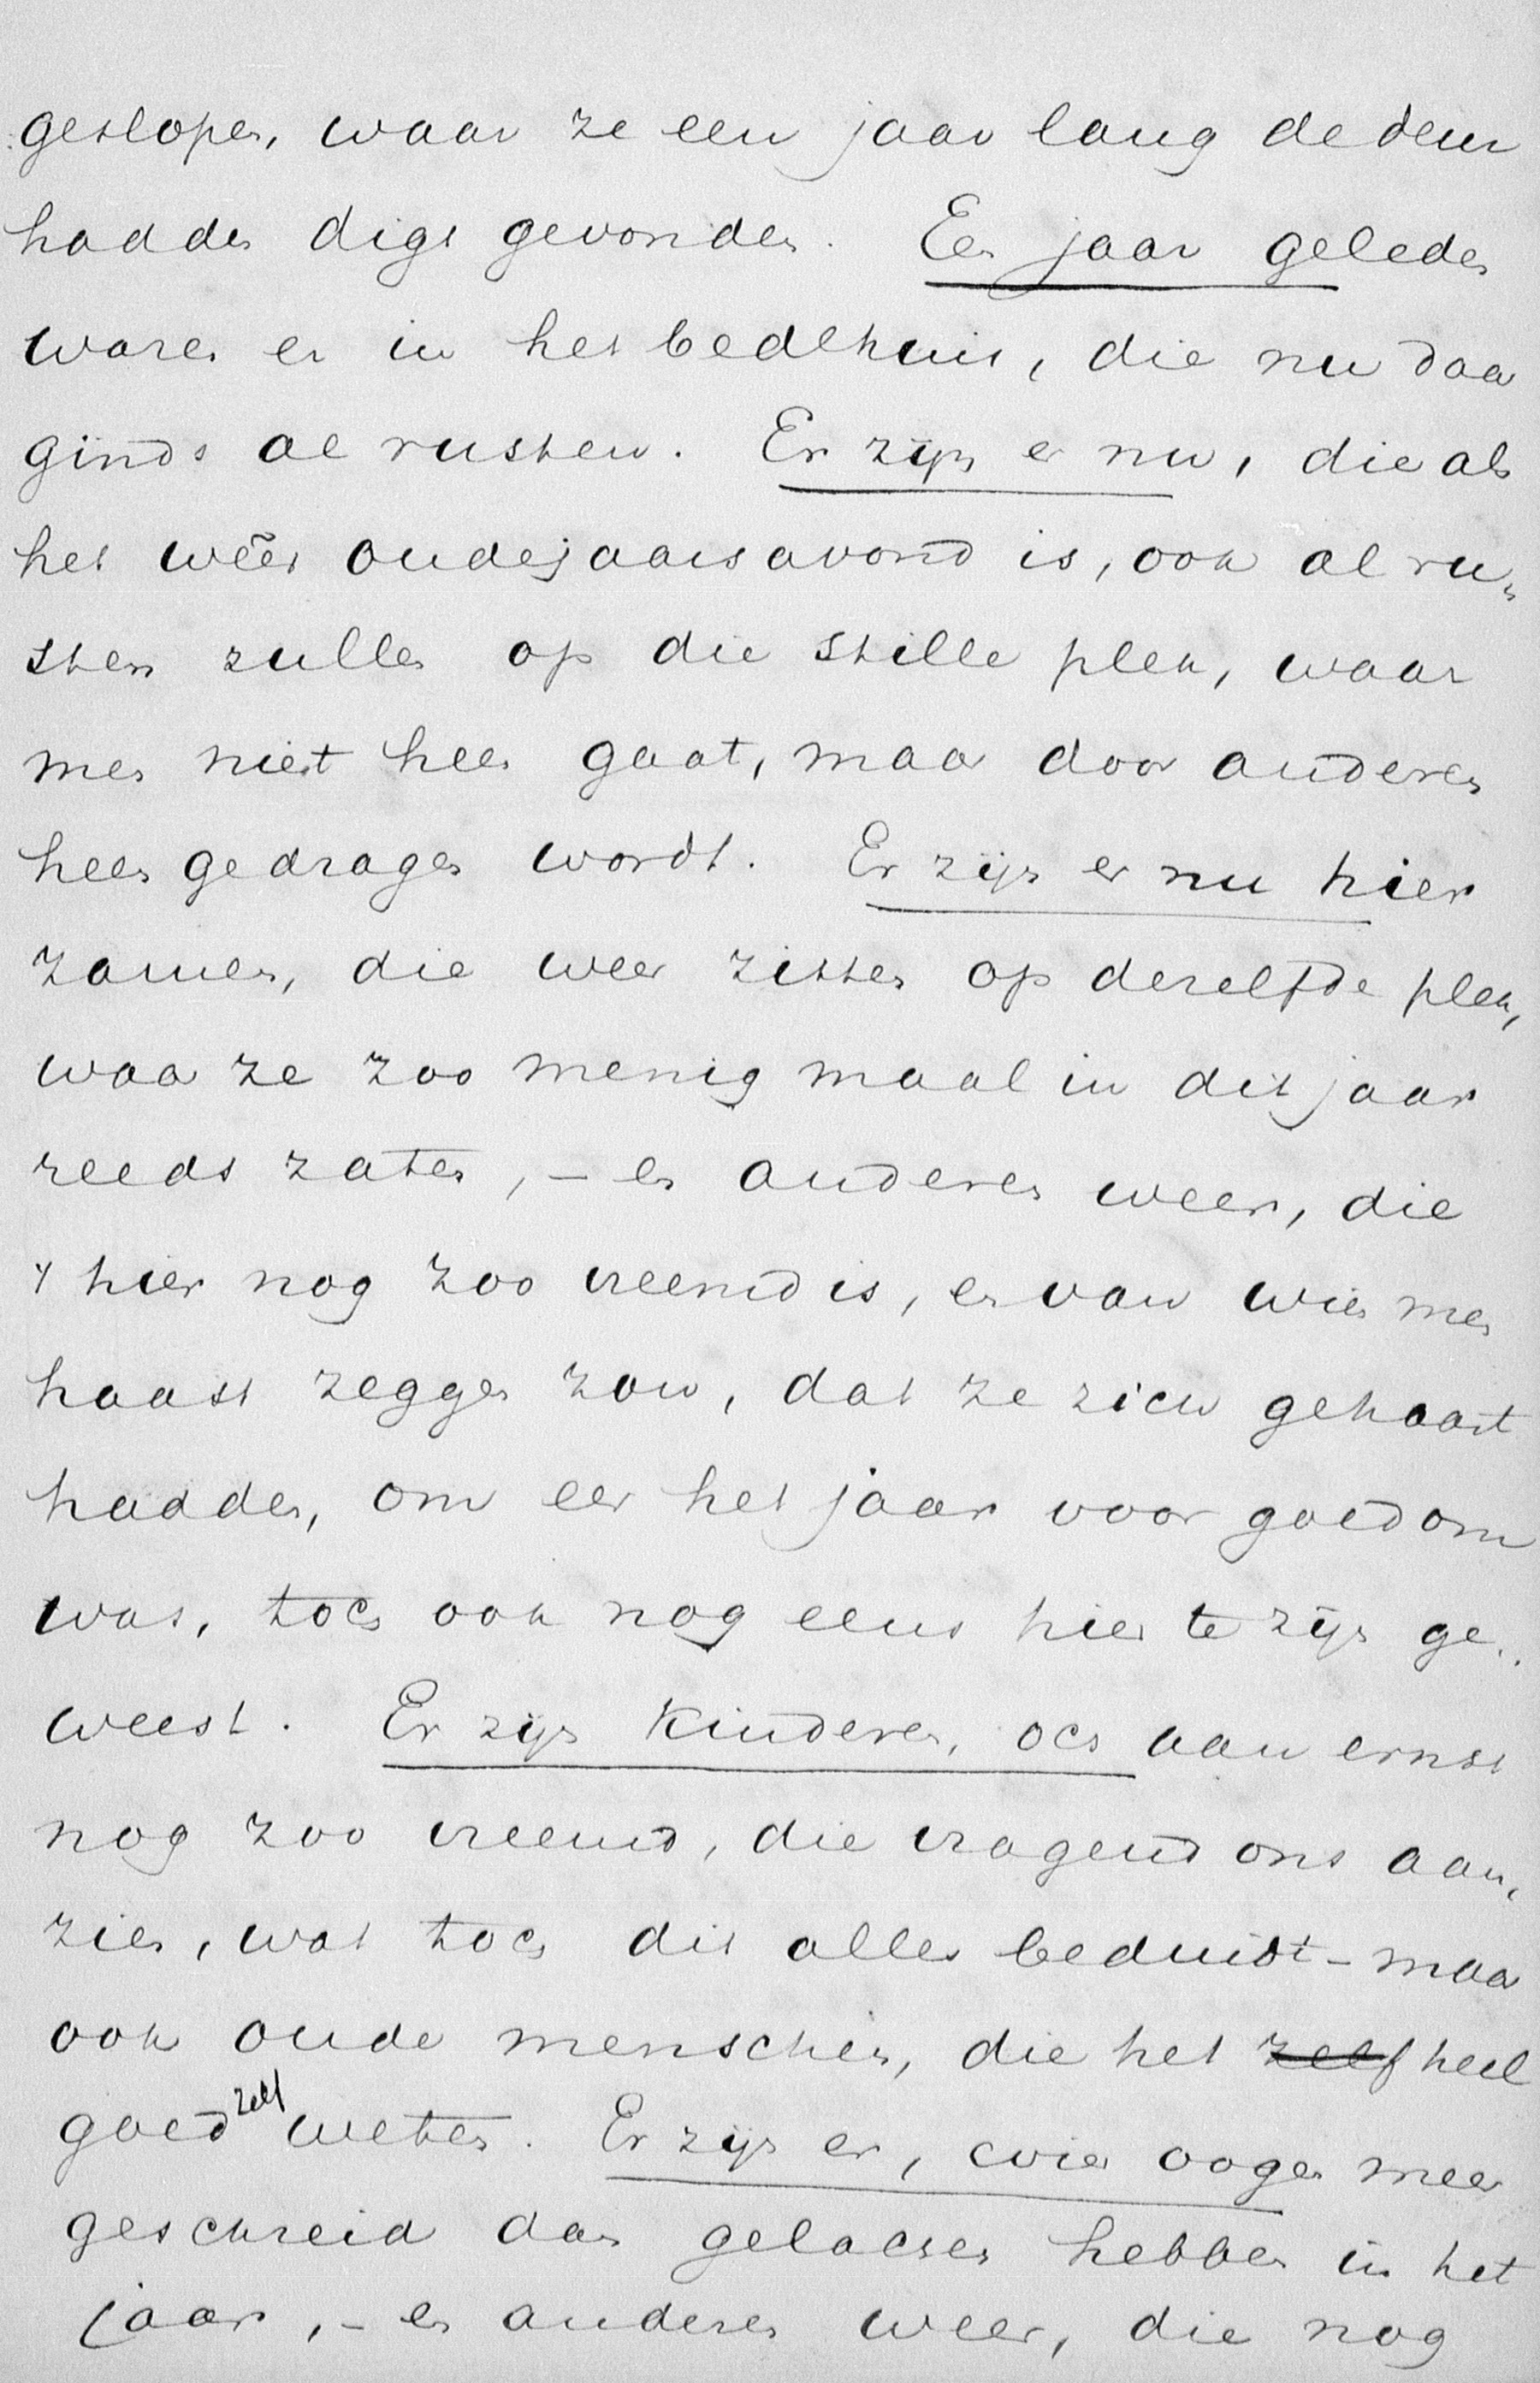 geslopen, waar ze een jaar lang de deur
hadden digt gevonden. Een jaar geleden
waren er in het bedehuis, die nu daar
ginds al rusten. Er zijn er nu, die als
het wêer oudejaarsavond is, ook al ru„
sten zullen op die stille plek, waar
men niet heen gaat, maar door anderen
heen gedragen wordt. Er zijn er nu hier
zamen, die weer zitten op dezelfde plek,
waar ze zoo menig maal in dit jaar
reeds zaten, – en anderen weer, die
't hier nog zoo vreemd is, en van wien men
haast zeggen zou, dat ze zich gehaast
hadden, om eer het jaar voor goed om
was, toch ook nog eens hier te zijn ge„
weest. Er zijn kinderen, och aan ernst
nog zoo vreemd, die vragend ons aan„
zien, wat toch dit alles beduidt – maar
ook oude menschen, die het zelf heel
goed zelf weten. Er zijn er, wier oogen meer
geschreid dan gelachen hebben in het
jaar, – en anderen weer, die nog